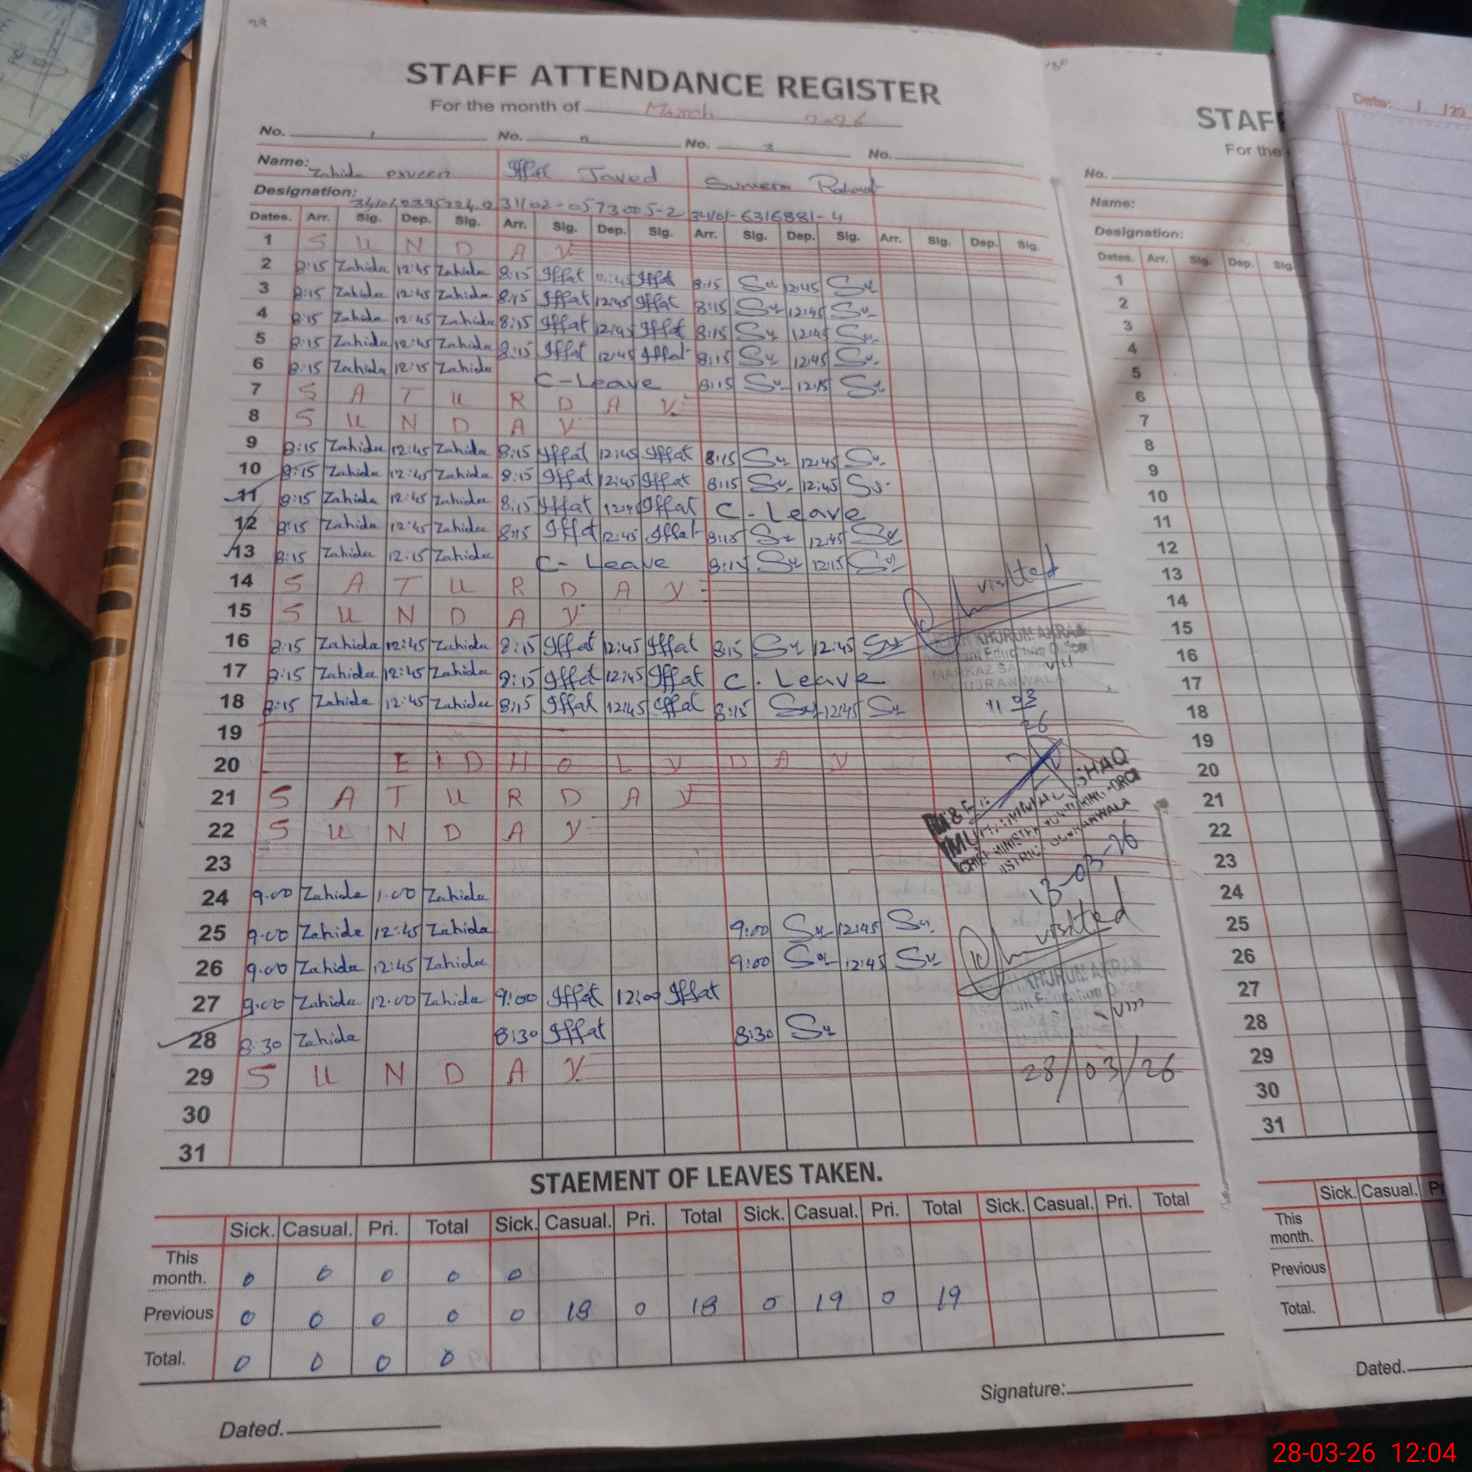 29
STAFF ATTENDANCE REGISTER
For the month of March 2026
No. 1 No. No. No.
Name: Zahida Iffat Javed Sumera
Designation: 31102-0573005-2 34101-6316881-4
Dates. Arr. Sig. Dep. Sig. Arr. Sig. Dep. Sig. Arr. Sig. Dep. Sig. Arr. Sig. Dep. Sig.
1 S U N D A Y
2 8:15 Zahida 12:45 Zahida 8:15 Iffat 12:45 Iffat 8:15 Su 12:45 Su
3 8:15 Zahida 12:45 Zahida 8:15 Iffat 12:45 Iffat 8:15 Su 12:45 Su
4 8:15 Zahida 12:45 Zahida 8:15 Iffat 12:45 Iffat 8:15 Su 12:45 Su
5 8:15 Zahida 12:45 Zahida 8:15 Iffat 12:45 Iffat 8:15 Su 12:45 Su
6 8:15 Zahida 12:15 Zahida C-Leave 8:15 Su 12:15 Su
7 S A T U R D A Y
8 S U N D A Y
9 8:15 Zahida 12:45 Zahida 8:15 Iffat 12:45 Iffat 8:15 Su 12:45 Su
10 8:15 Zahida 12:45 Zahida 8:15 Iffat 12:45 Iffat 8:15 Su 12:45 Su
11 8:15 Zahida 12:45 Zahida 8:15 Iffat 12:45 Iffat C-Leave
12 8:15 Zahida 12:45 Zahida 8:15 Iffat 12:45 Iffat 8:15 Su 12:45 Su
13 8:15 Zahida 12:15 Zahida C-Leave 8:15 Su 12:15 Su
14 S A T U R D A Y
visited
15 S U N D A Y
16 8:15 Zahida 12:45 Zahida 8:15 Iffat 12:45 Iffat 8:15 Su 12:45 Su
KHURUM AKRAM
17 8:15 Zahida 12:45 Zahida 8:15 Iffat 12:45 Iffat C. Leave
GUJRANWALA
18 8:15 Zahida 12:45 Zahida 8:15 Iffat 12:45 Iffat 8:15 Su 12:45 Su
11 03
26
19
20 E I D H O L Y D A Y
21 S A T U R D A Y
22 S U N D A Y
23
13-03-26
24 9:00 Zahida 1:00 Zahida
25 9:00 Zahida 12:45 Zahida 9:00 Su 12:45 Su
visited
26 9:00 Zahida 12:45 Zahida 9:00 Su 12:45 Su
KHURUM AKRAM
27 9:00 Zahida 12:00 Zahida 9:00 Iffat 12:00 Iffat
28 8:30 Zahida 8:30 Iffat 8:30 Su
29 S U N D A Y
28/03/26
30
31
STAEMENT OF LEAVES TAKEN.
Sick. Casual. Pri. Total Sick. Casual. Pri. Total Sick. Casual. Pri. Total Sick. Casual. Pri. Total
This month. 0 0 0 0 0
Previous 0 0 0 0 0 18 0 18 0 19 0 19
Total. 0 0 0 0
Signature:
Dated.
STAF
For the
No.
Name:
Designation:
Dates. Arr. Sig. Dep. Sig
1
2
3
4
5
6
7
8
9
10
11
12
13
14
15
16
17
18
19
20
21
22
23
24
25
26
27
28
29
30
31
Sick. Casual.
This month.
Previous
Total.
Dated.
Date: / /20
28-03-26 12:04